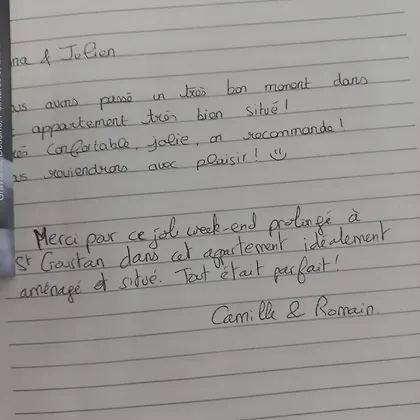 na & Julien
us avons passé un très bon moment dans
appartement très bien situé!
ès confortable, jolie, on recommande!
us reviendrons avec plaisir! ☺
Merci pour ce joli week-end prolongé à
St Goustan dans cet appartement idéalement
aménagé et situé. Tout était parfait!
Camille & Romain.